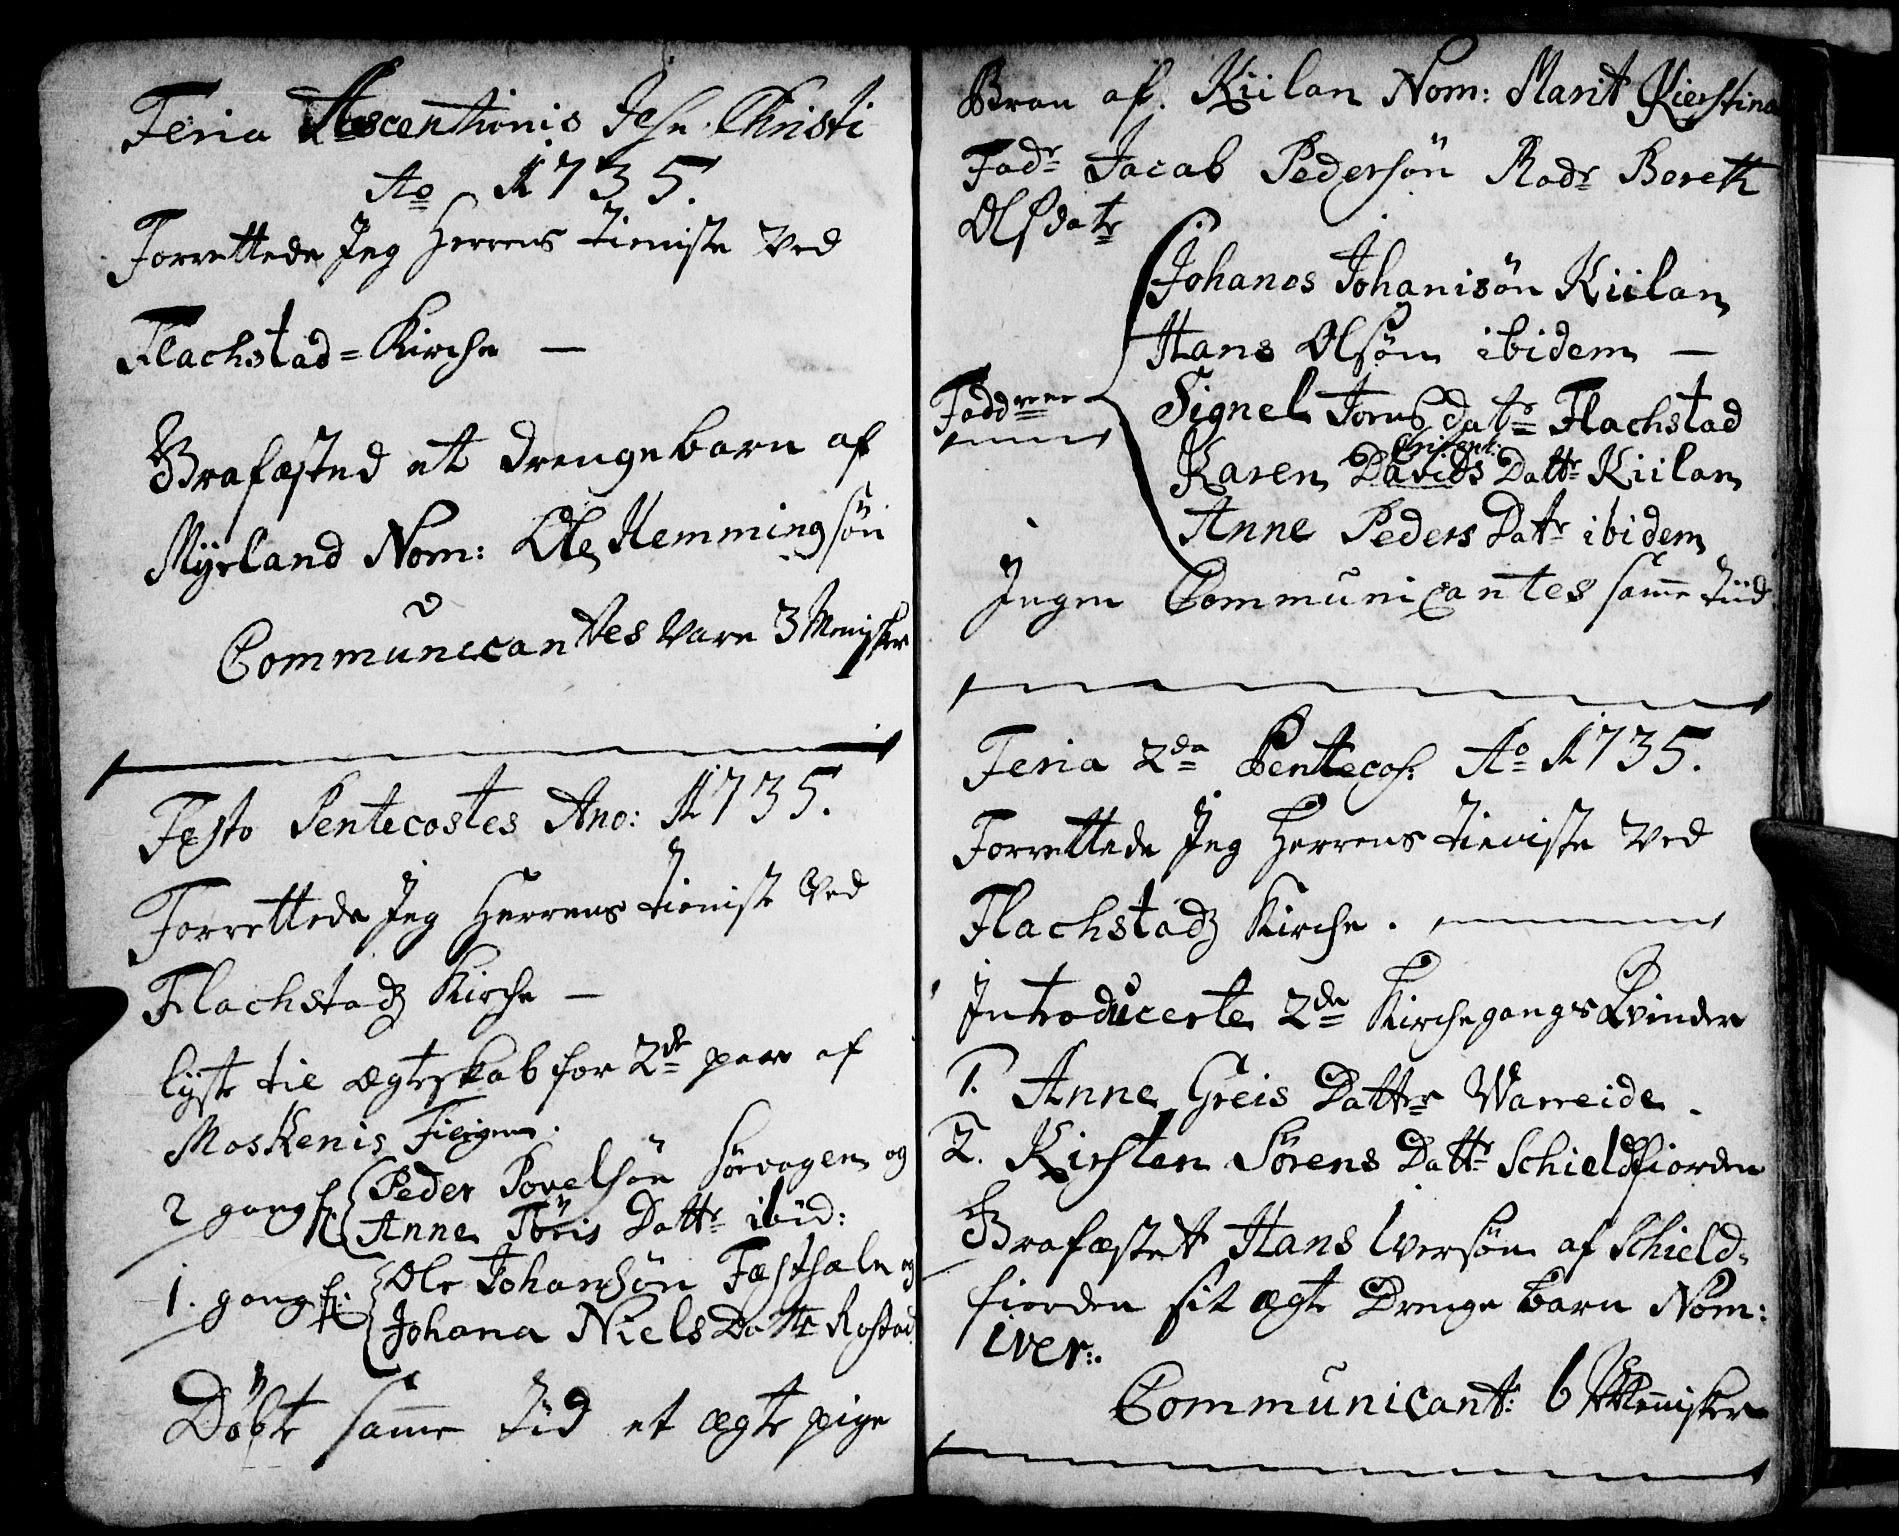 Feria Ascentionis Jesu Christi
Ao 1735.
Forrettede Jeg Herrens tieniste Ved
Flachstad=Kirche —
Grafæsted et drengebarn af
Myrland Nom: Ole Hemmingsøn
Communicantes Vare 3 Menisker
Festo Pentecostes Ano: 1735.
Forrettede Jeg Herrens tienist Ved
Flachstadz Kirche —
lyste til ægteskab for 2de paar af
Moskenis Fierigen.
2 gang Peder Povelsøn Sørvagen og
Anne Töris Dattr ibid:
1. gang Ole Johansøn Festhæln og
Johana Niels Dattr Rostad
Döbte samme tid et ægte pige
Bran af. Kiilan Nom: Marit Kierstina
Fadr Jacab Pedersön Modr Bereth
Olsdatr
Johanes Johanisön Kiilan
Hans Olsøn ibidem —
Faddrene
Signel Jons datr Flachstad
Karen Davids Dattr Kiilan
Anne Peders Datr ibidem
Ingen Communicantes samme tiid
Feria 2da Pentecos: Ao 1735.
Forrettede Jeg Herrens tieniste Ved
Flachstadz Kirche.
Introducerte 2de Kirchegangs Qvinder
1. Anne Greis Dattr Warreide.
2. Kirsten Sörens Dattr Schieldfiorden
Grafæstet Hans Iversøn af Schield-
fiorden sit ægte Drenge barn Nom:
iver:.
Communicant: 6 Mennisker